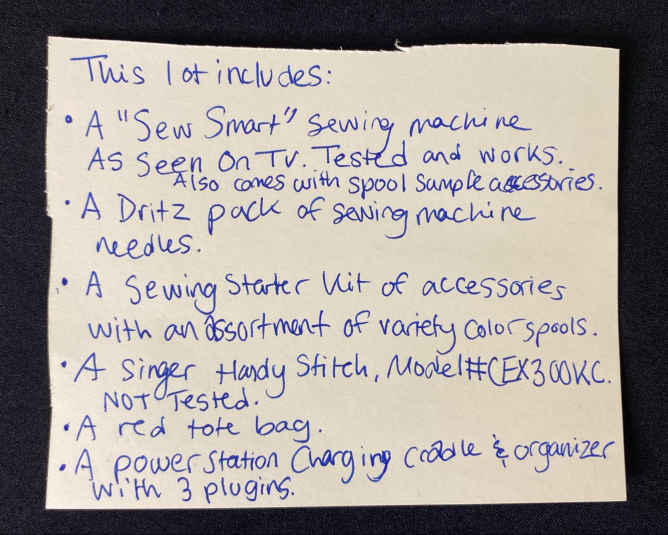 This lot includes:
• A "Sew Smart" sewing machine
As Seen On TV. Tested and works.
Also comes with spool sample accessories.
• A Dritz pack of sewing machine
needles.
• A Sewing Starter Kit of accessories
with an assortment of variety color spools.
• A Singer Handy Stitch, Model#CEX300KC.
NOT Tested.
• A red tote bag.
• A powerstation Charging cradle & organizer
with 3 plugins.